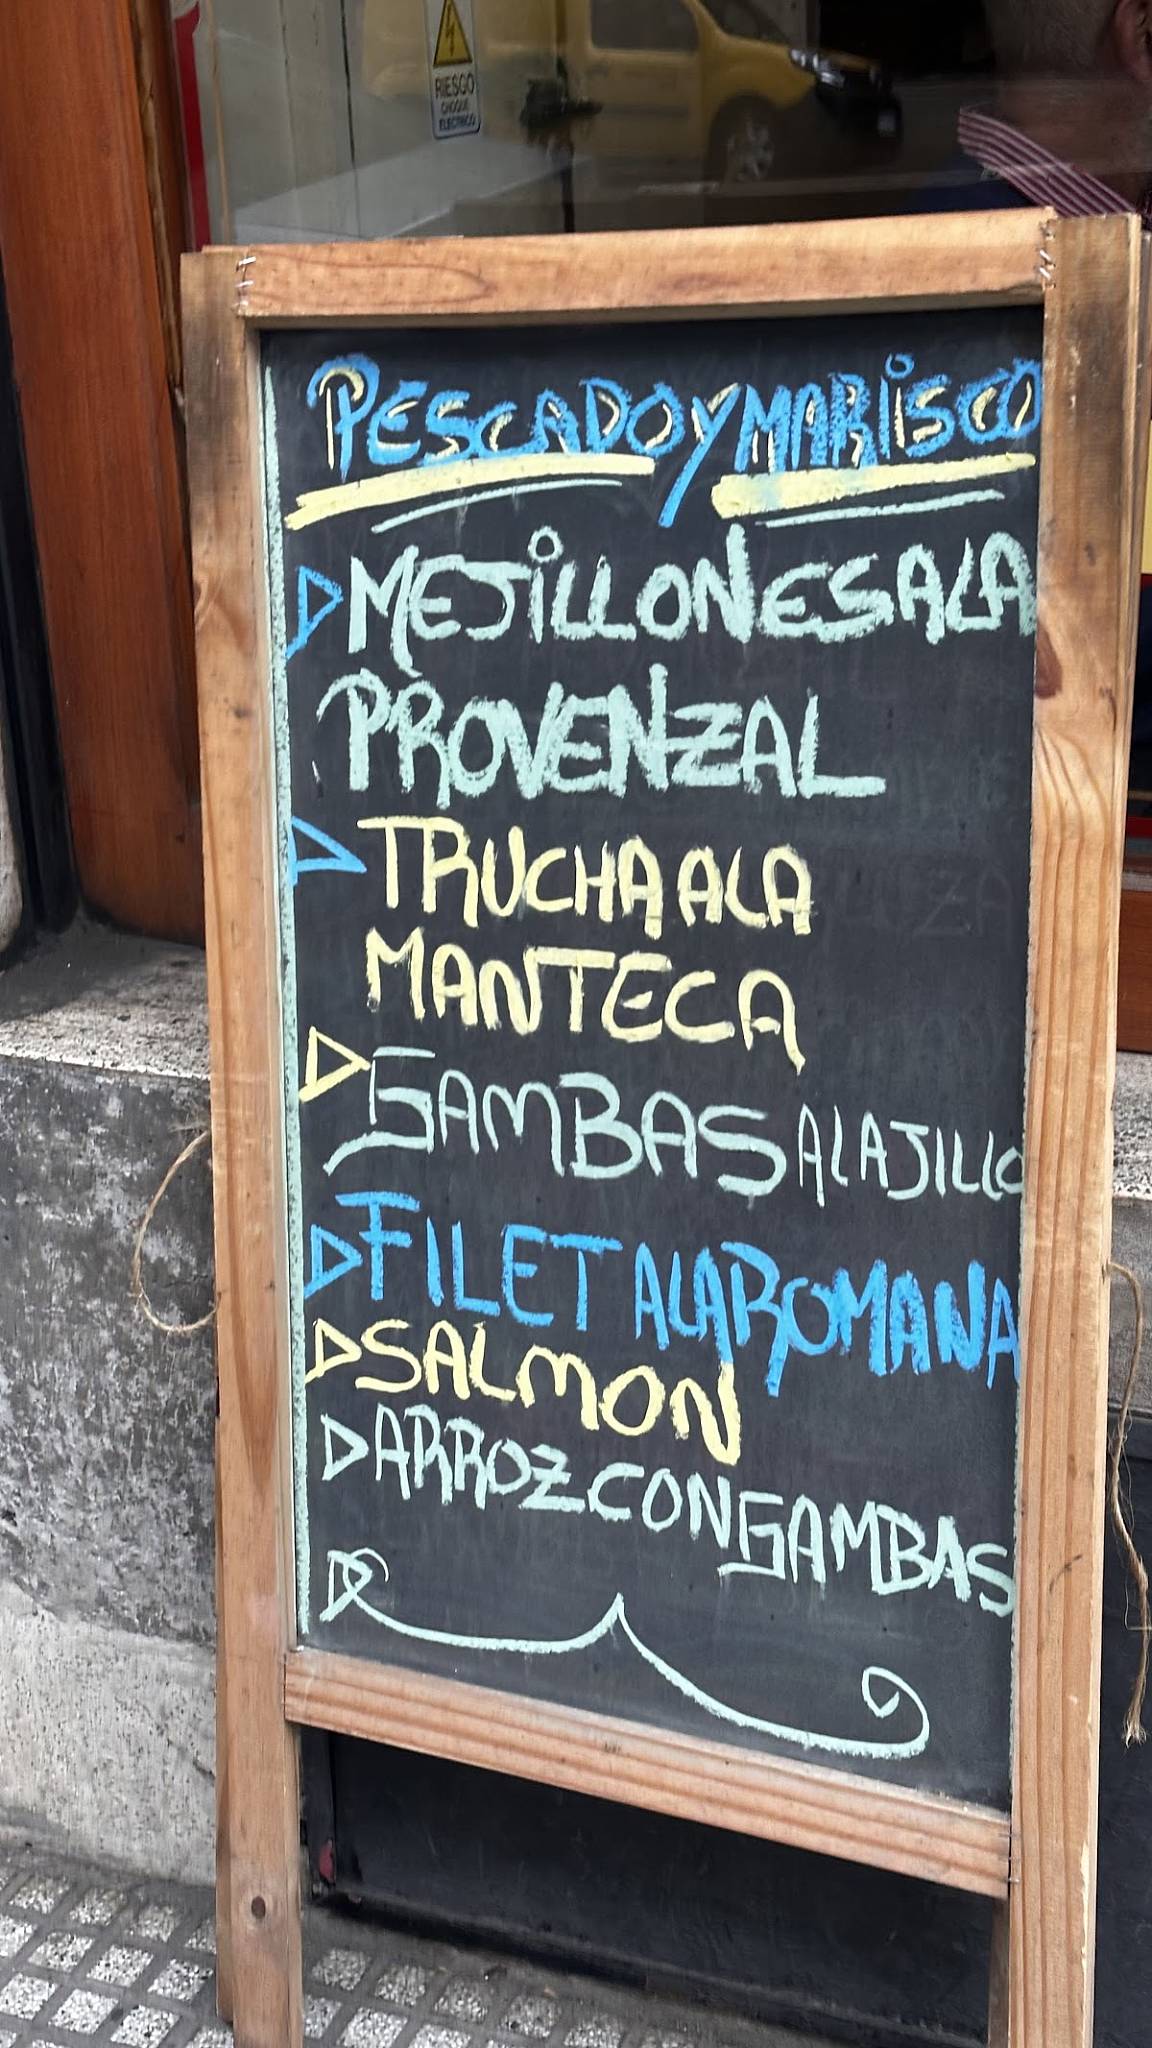 RIESGO
CHOQUE
ELECTRICO
PESCADO Y MARISCO
MEJILLONES A LA
PROVENZAL
TRUCHA A LA
MANTECA
GAMBAS AL AJILLO
FILET A LA ROMANA
SALMON
ARROZ CON GAMBAS